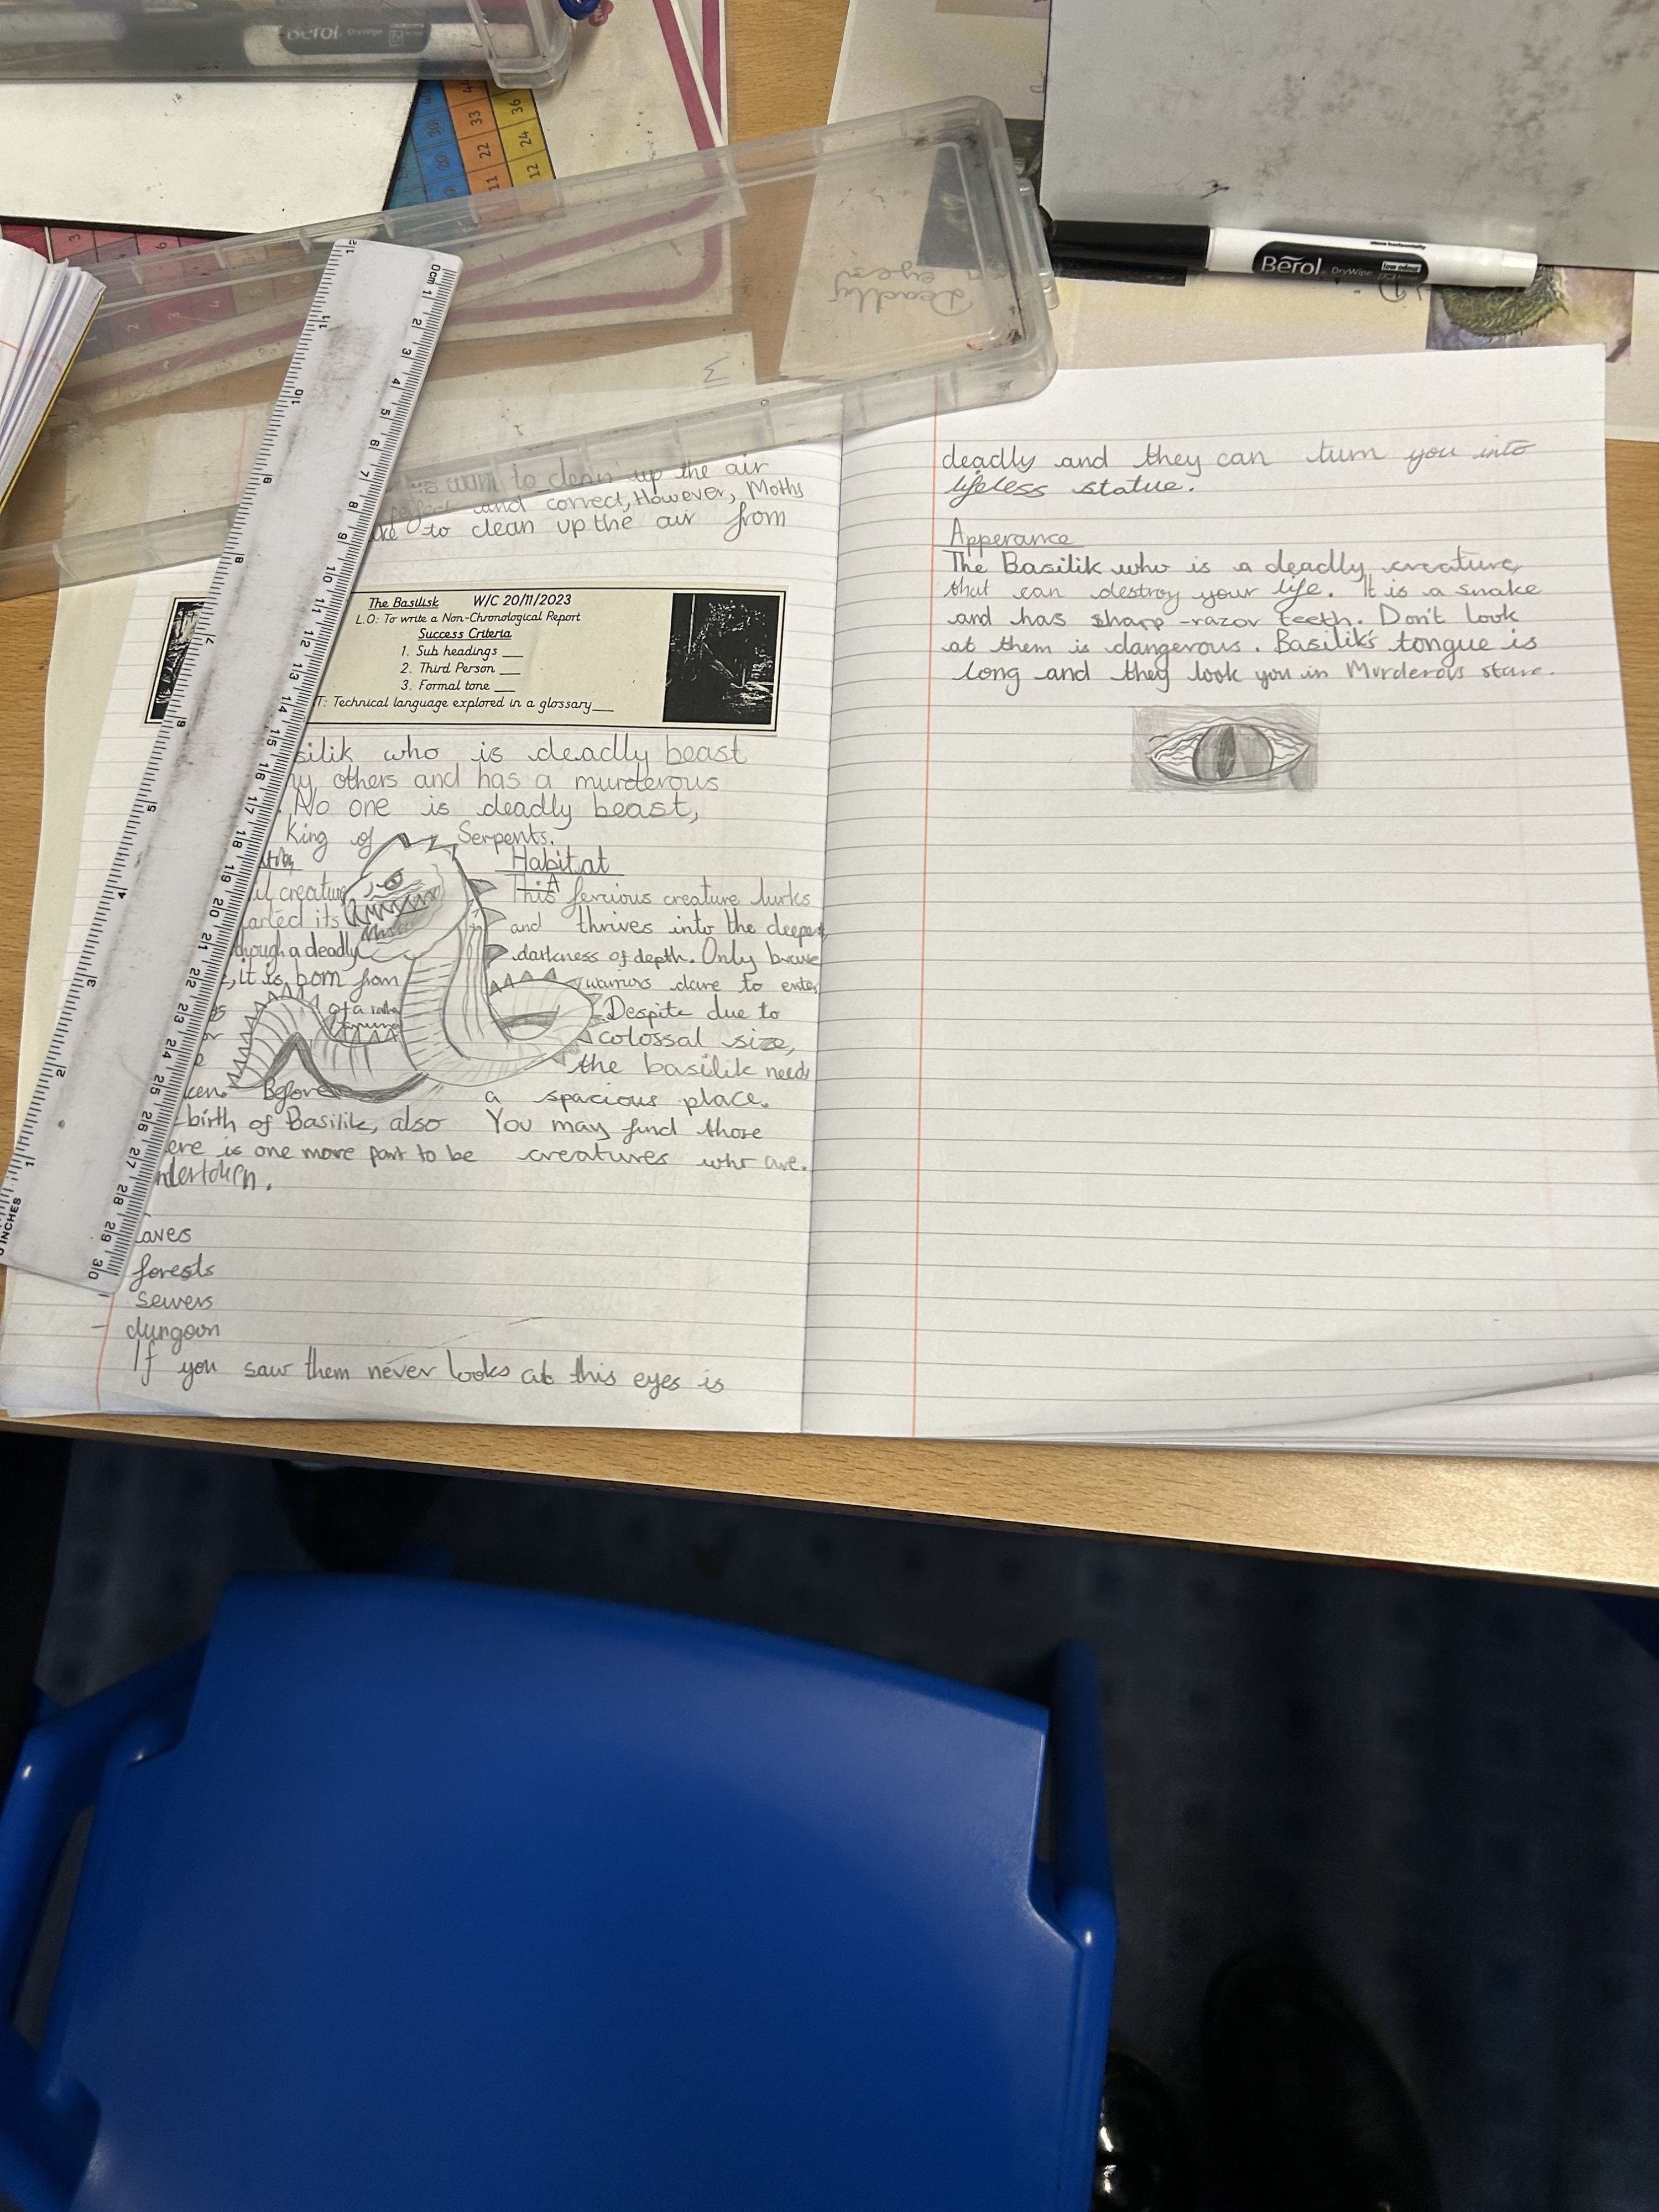 Berol
want to clean up the air
and correct, However, Moths
to clean up the air from
The Basilisk W/C 20/11/2023
L.O: To write a Non-Chronological Report
Success Criteria
1. Sub headings
2. Third Person
3. Formal tone
T: Technical language explored in a glossary
silik who is deadly beast
others and has a murderous
No one is deadly beast,
King of Serpents.
creature
arted its
though a deadly
it is born from
of a
Before
birth of Basilik, also
ere is one more part to be
ndertaken.
Habitat
This fercious creature lurks
and thrives into the deepest
darkness of depth. Only brave
warriors dare to enter
Despite due to
colossal size,
the basilik needs
a spacious place.
You may find those
creatures who are.
caves
forests
sewers
- dungoon
If you saw them never looks at this eyes is
deadly and they can turn you into
lifeless statue.
Apperance
The Basilik who is a deadly creature,
that can destroy your life. It is a snake
and has sharp-razor teeth. Don't look
at them is dangerous. Basilik's tongue is
long and they look you in Murderous stare.
Deadly
eyes
Berol DryWipe low odour
store horizontally
0cm 1 2 3 4 5 6 7 8 9 10 11 12 13 14 15 16 17 18 19 20 21 22 23 24 25 26 27 28 29 30
INCHES 1 2 3 4 5 6 7 8 9 10 11 12
11 22 33
12 24 36